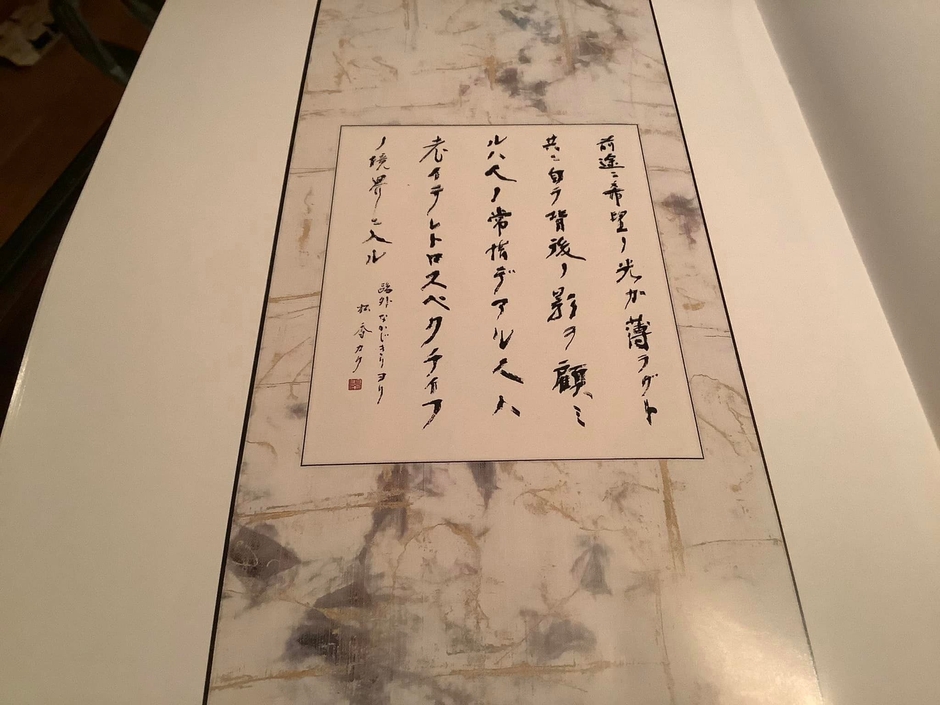 前途ニ希望ノ光ガ薄ラグト
共ニ自ラ背後ノ影ヲ顧ミ
ルハ人ノ常情デアル人ハ
老イテレトロスペクチイフ
ノ境界ニ入ル
鷗外なかじきりヨリ
カク